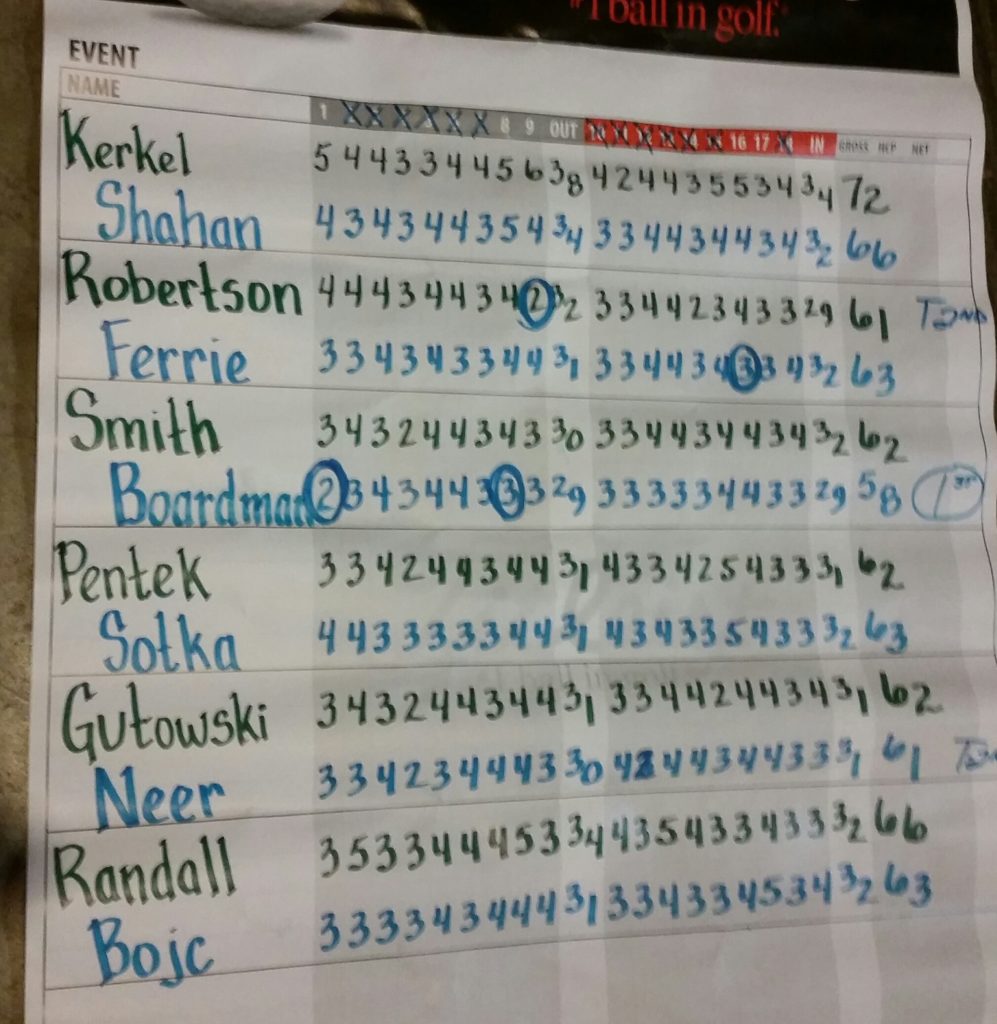 1 ball in golf.
EVENT
NAME
1 X X X X X X 8 9 OUT X X X X X X 16 17 X IN GROSS HCP NET
Kerkel 5 4 4 3 3 4 4 5 6 38 4 2 4 4 3 5 5 3 4 34 72
Shahan 4 3 4 3 4 4 3 5 4 34 3 3 4 4 3 4 4 3 4 32 66
Robertson 4 4 4 3 4 4 3 4 2 32 3 3 4 4 2 3 4 3 3 29 61 T2ND
Ferrie 3 3 4 3 4 3 3 4 4 31 3 3 4 4 3 4 3 3 4 32 63
Smith 3 4 3 2 4 4 3 4 3 30 3 3 4 4 3 4 4 3 4 32 62
Boardman 2 3 4 3 4 4 3 3 3 29 3 3 3 3 3 4 4 3 3 29 58 1ST
Pentek 3 3 4 2 4 4 3 4 4 31 4 3 3 4 2 5 4 3 3 31 62
Sotka 4 4 3 3 3 3 3 4 4 31 4 3 4 3 3 5 4 3 3 32 63
Gutowski 3 4 3 2 4 4 3 4 4 31 3 3 4 4 2 4 4 3 4 31 62
Neer 3 3 4 2 3 4 4 4 3 30 4 2 4 4 3 4 4 3 3 31 61
Randall 3 5 3 3 4 4 4 5 3 34 4 3 5 4 3 3 4 3 3 32 66
Bojc 3 3 3 3 4 3 4 4 4 31 3 3 4 3 3 4 5 3 4 32 63